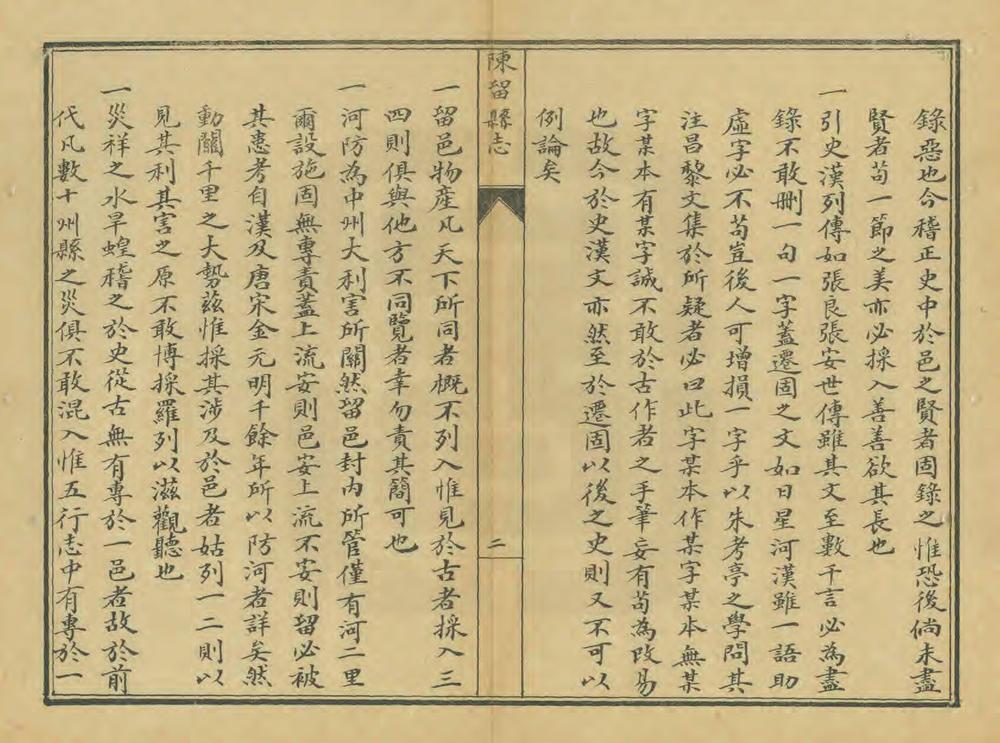 錄惡也今稽正史中於邑之賢者固錄之惟恐後倘未盡
賢者苟一節之美亦必採入善善欲其長也
一引史漢列傳如張良張安世傳雖其文至數千言必為盡
錄不敢刪一句一字蓋遷固之文如日星河漢雖一語助
虛字必不苟豈後人可增損一字乎以朱考亭之學問其
注昌黎文集於所疑者必曰此字某本作某字某本無某
字某本有某字誠不敢於古作者之手筆妄有苟為改易
也故今於史漢文亦然至於遷固以後之史則又不可以
例論矣
陳留縣志
二
一留邑物產凡天下所同者概不列入惟見於古者採入三
四則俱與他方不同覽者幸勿責其簡可也
一河防為中州大利害所關然留邑封內所管僅有河二里
爾設施固無專責蓋上流安則邑安上流不安則留必被
其患考自漢及唐宋金元明千餘年所以防河者詳矣然
動關千里之大勢茲惟採其涉及於邑者姑列一二則以
見其利其害之原不敢博採羅列以滋觀聽也
一災祥之水旱蝗稽之於史從古無有專於一邑者故於前
代凡數十州縣之災俱不敢混入惟五行志中有專於一